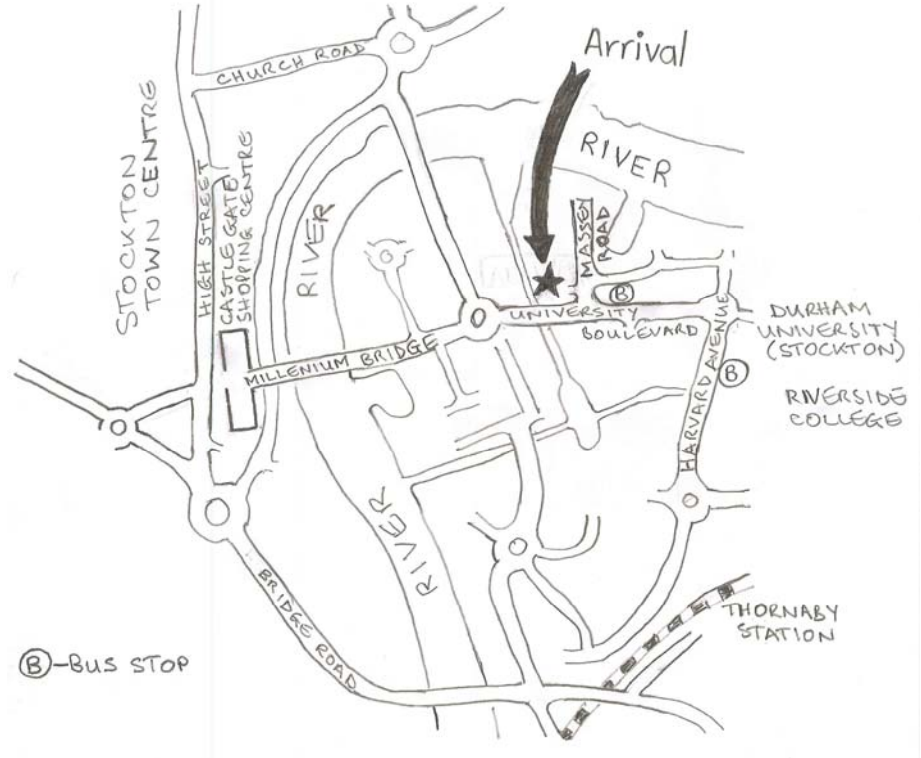 Arrival
CHURCH ROAD
RIVER
STOCKTON
TOWN CENTRE
HIGH STREET
CASTLE GATE
SHOPPING CENTRE
RIVER
MASSEY
ROAD
B
UNIVERSITY
BOULEVARD
DURHAM
UNIVERSITY
(STOCKTON)
MILLENIUM BRIDGE
HARVARD AVENUE
B
RIVERSIDE
COLLEGE
RIVER
BRIDGE ROAD
THORNABY
STATION
B-BUS STOP